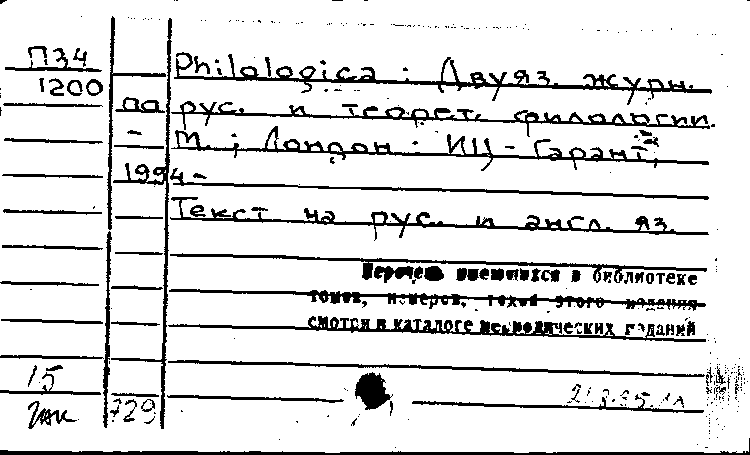 П34
1200
Philologica : Двуяз. журн.
по рус. и теорет. филологии.
- М. ; Лондон : ИЦ - Гарант,
1994-
Текст на рус. и англ. яз.
Перечень имеющихся в библиотеке
томов, номеров, годов этого издания
смотри в каталоге периодических изданий
15
729